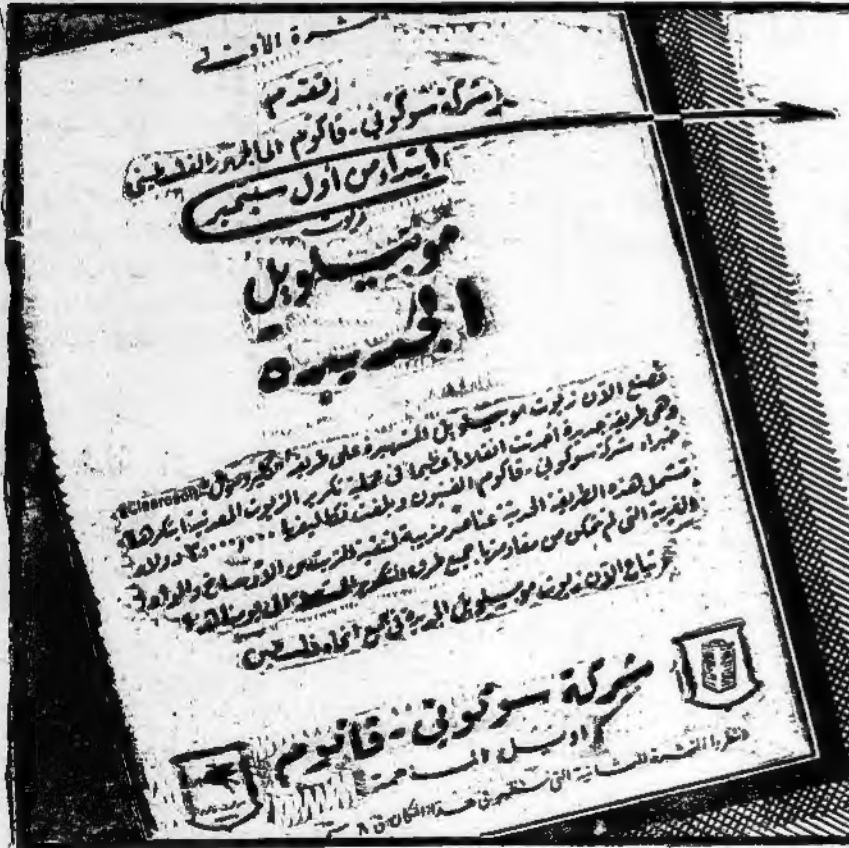 النشرة الأولى
تقدم
شركة سوكوني - فاكوم الى الجمهور الفلسطيني
ابتداء من اول سبتمبر
زيوت
موبيلويل
الجديدة
تصنع الآن زيوت موبيلويل الشهيرة على طريقة الكليروسول "Clearosol"
وهي طريقة جديدة احدثت انقلابا عظيما في عملية تكرير الزيوت المعدنية ابتكرها
خبراء شركة سوكوني - فاكوم الفنيون وبلغت تكاليفها دولار
تشتمل هذه الطريقة الحديثة عناصر مذيبة لتنقية الزيت من الأوساخ والمواد
الغريبة التي لم تتمكن من مقاومتها جميع طرق التكرير المستعملة الى يومنا هذا
تباع الآن زيوت موبيلويل الجديدة في جميع انحاء فلسطين
شركة سوكوني - فاكوم
اويل المساهمة
انتظروا النشرة الثانية التي ستظهر في هذا المكان في ٨